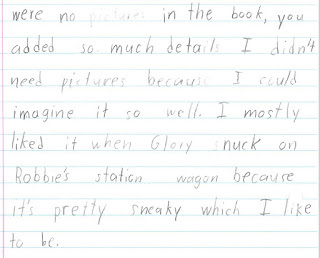 were no pictures in the book, you
added so much details I didn't
need pictures because I could
imagine it so well. I mostly
liked it when Glory snuck on
Robbie's station wagon because
it's pretty sneaky which I like
to be.